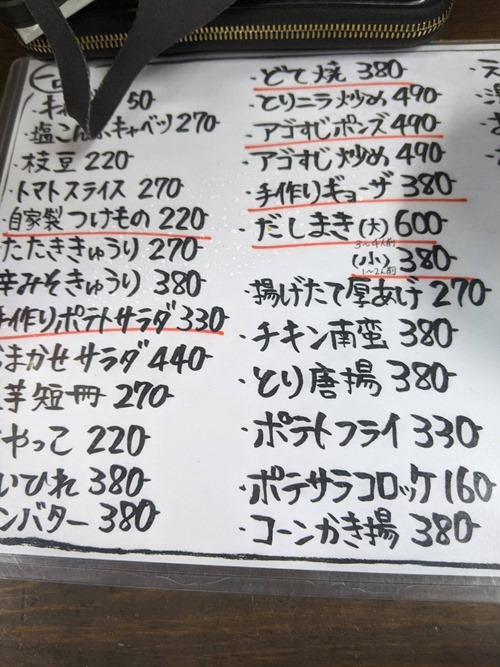 一品
キャベツ 50
・塩こんぶキャベツ 270
・枝豆 220
・トマトスライス 270
・自家製つけもの 220
たたききゅうり 270
辛みそきゅうり 380
手作りポテトサラダ 330
まかせサラダ 440
芋短冊 270
やっこ 220
いひれ 380
ンバター 380
・どて焼 380
・とりニラ炒め 490
・アゴすじポンズ 490
・アゴすじ炒め 490
・手作りギョーザ 380
・だしまき(大) 600
3〜4人前
(小) 380
1〜2人前
・揚げたて厚あげ 270
・チキン南蛮 380
・とり唐揚 380
・ポテトフライ 330
・ポテサラコロッケ 160
・コーンかき揚 380